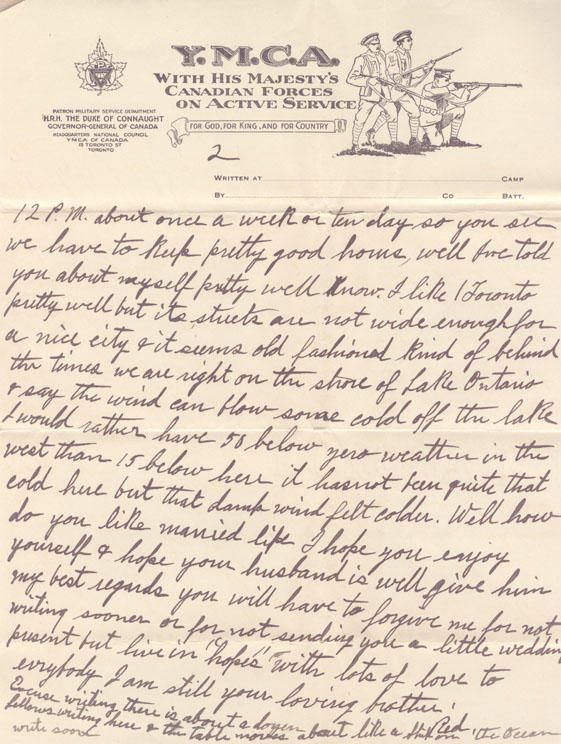 Y.M.C.A.
WITH HIS MAJESTY'S
CANADIAN FORCES
ON ACTIVE SERVICE
FOR GOD, FOR KING, AND FOR COUNTRY
PATRON MILITARY SERVICE DEPARTMENT
H.R.H. THE DUKE OF CONNAUGHT
GOVERNOR-GENERAL OF CANADA
HEADQUARTERS NATIONAL COUNCIL
Y.M.C.A. OF CANADA
TORONTO ST
TORONTO
2
WRITTEN AT CAMP
BY CO BATT.
12 P.M. about once a week or ten day, so you see
we have to keep pretty good hours, well I've told
you about myself pretty well know. I like Toronto
pretty well but its streets are not wide enough for
a nice city & it seems old fashioned kind of behind
the times we are right on the shore of Lake Ontario
& say the wind can blow some cold off the lake
I would rather have 50 below zero weather in the
west than 15 below here it has not been quite that
cold here but that damp wind felt colder. Well how
do you like married life I hope you enjoy
yourself & hope your husband is well give him
my best regards you will have to forgive me for not
writing sooner or for not sending you a little wedding
present but live in "hopes" with lots of love to
everybody I am still your loving brother,
Red
Excuse writing there is about a dozen
fellows writing here & the table moves about like a ship on the Ocean
write soon